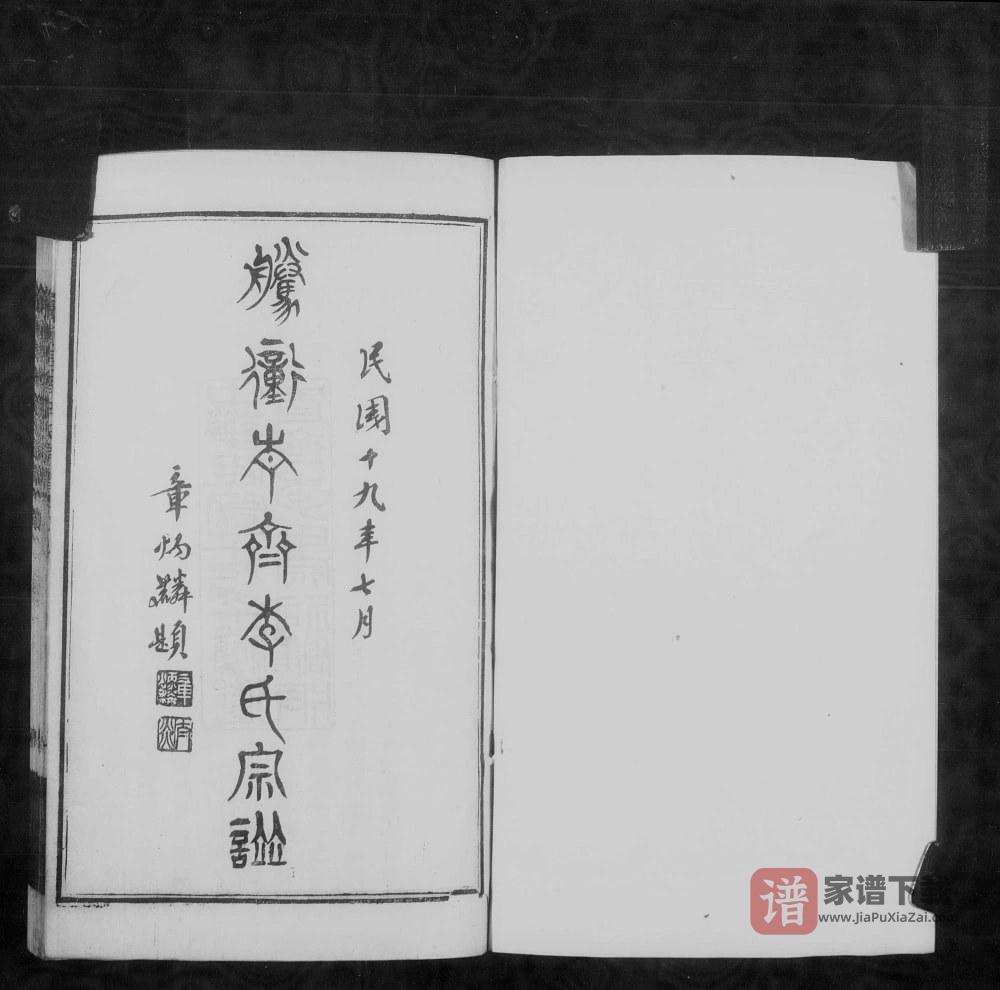 民國十九年七月
騰衝青齊李氏宗譜
章炳麟題
章炳麟
家谱下载
www.JiaPuXiaZai.com
谱